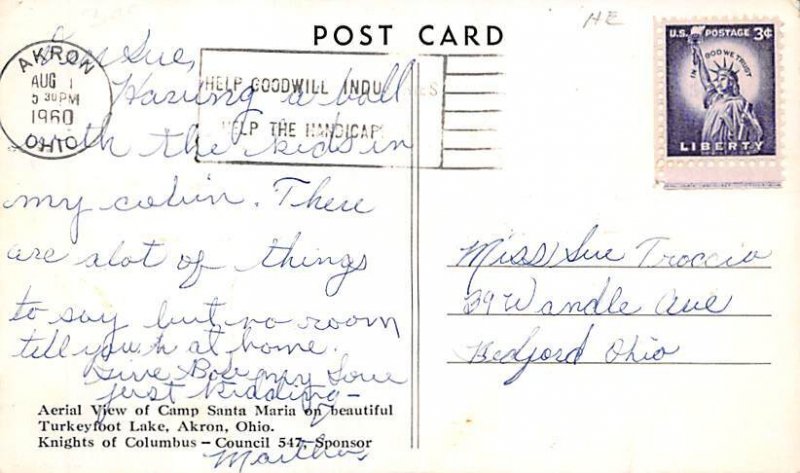 POST CARD
HE
AKRON
AUG 1
5 30 PM
1960
OHIO
HELP GOODWILL INDUSTRIES
HELP THE HANDICAP
U.S. POSTAGE 3¢
IN GOD WE TRUST
LIBERTY
Dear Sue,
Having a ball
with the kids in
my cabin. There
are alot of things
to say but no room
tell you at home.
Give Bob my love
just kidding-
Martha
Miss Sue Troccio
29 Wandle Ave
Bedford Ohio
Aerial View of Camp Santa Maria on beautiful
Turkeyfoot Lake, Akron, Ohio.
Knights of Columbus – Council 547, Sponsor